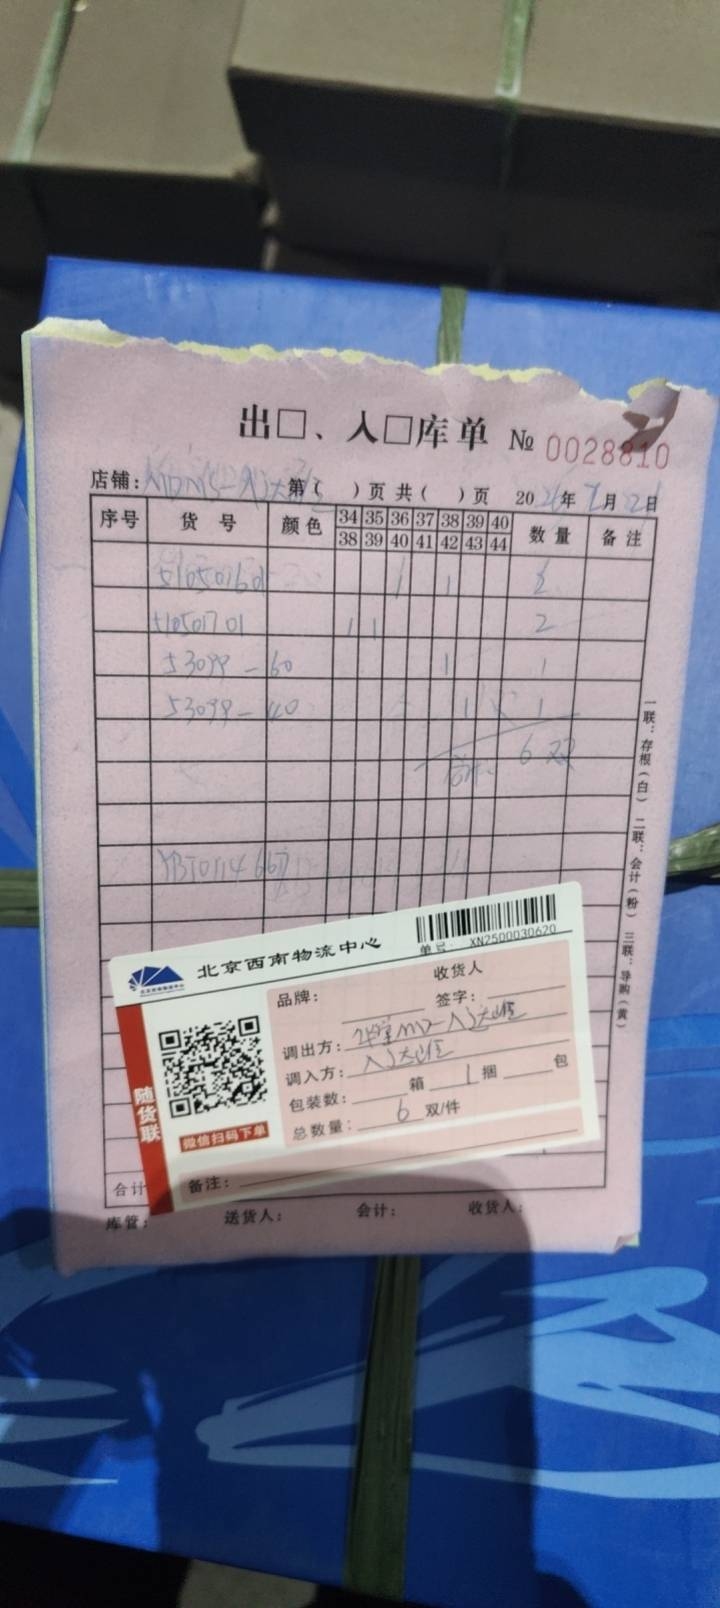 出□、入□库单 № 0028810
店铺: 第( )页 共( )页 20 年 月 日
序号 货号 颜色 34 35 36 37 38 39 40 数量 备注
38 39 40 41 42 43 44
1 1 2
51050701 1 1 2
53099-60 1 1
53099-40 1 1
6双
一联:存根(白) 二联:会计(粉) 三联:导购(黄)
北京西南物流中心
单号: XN2500030620
收货人
品牌: 签字:
调出方:
调入方:
包装数: 箱 1 捆 包
总数量: 6 双/件
随货联
微信扫码下单
备注:
合计
库管: 送货人: 会计: 收货人: